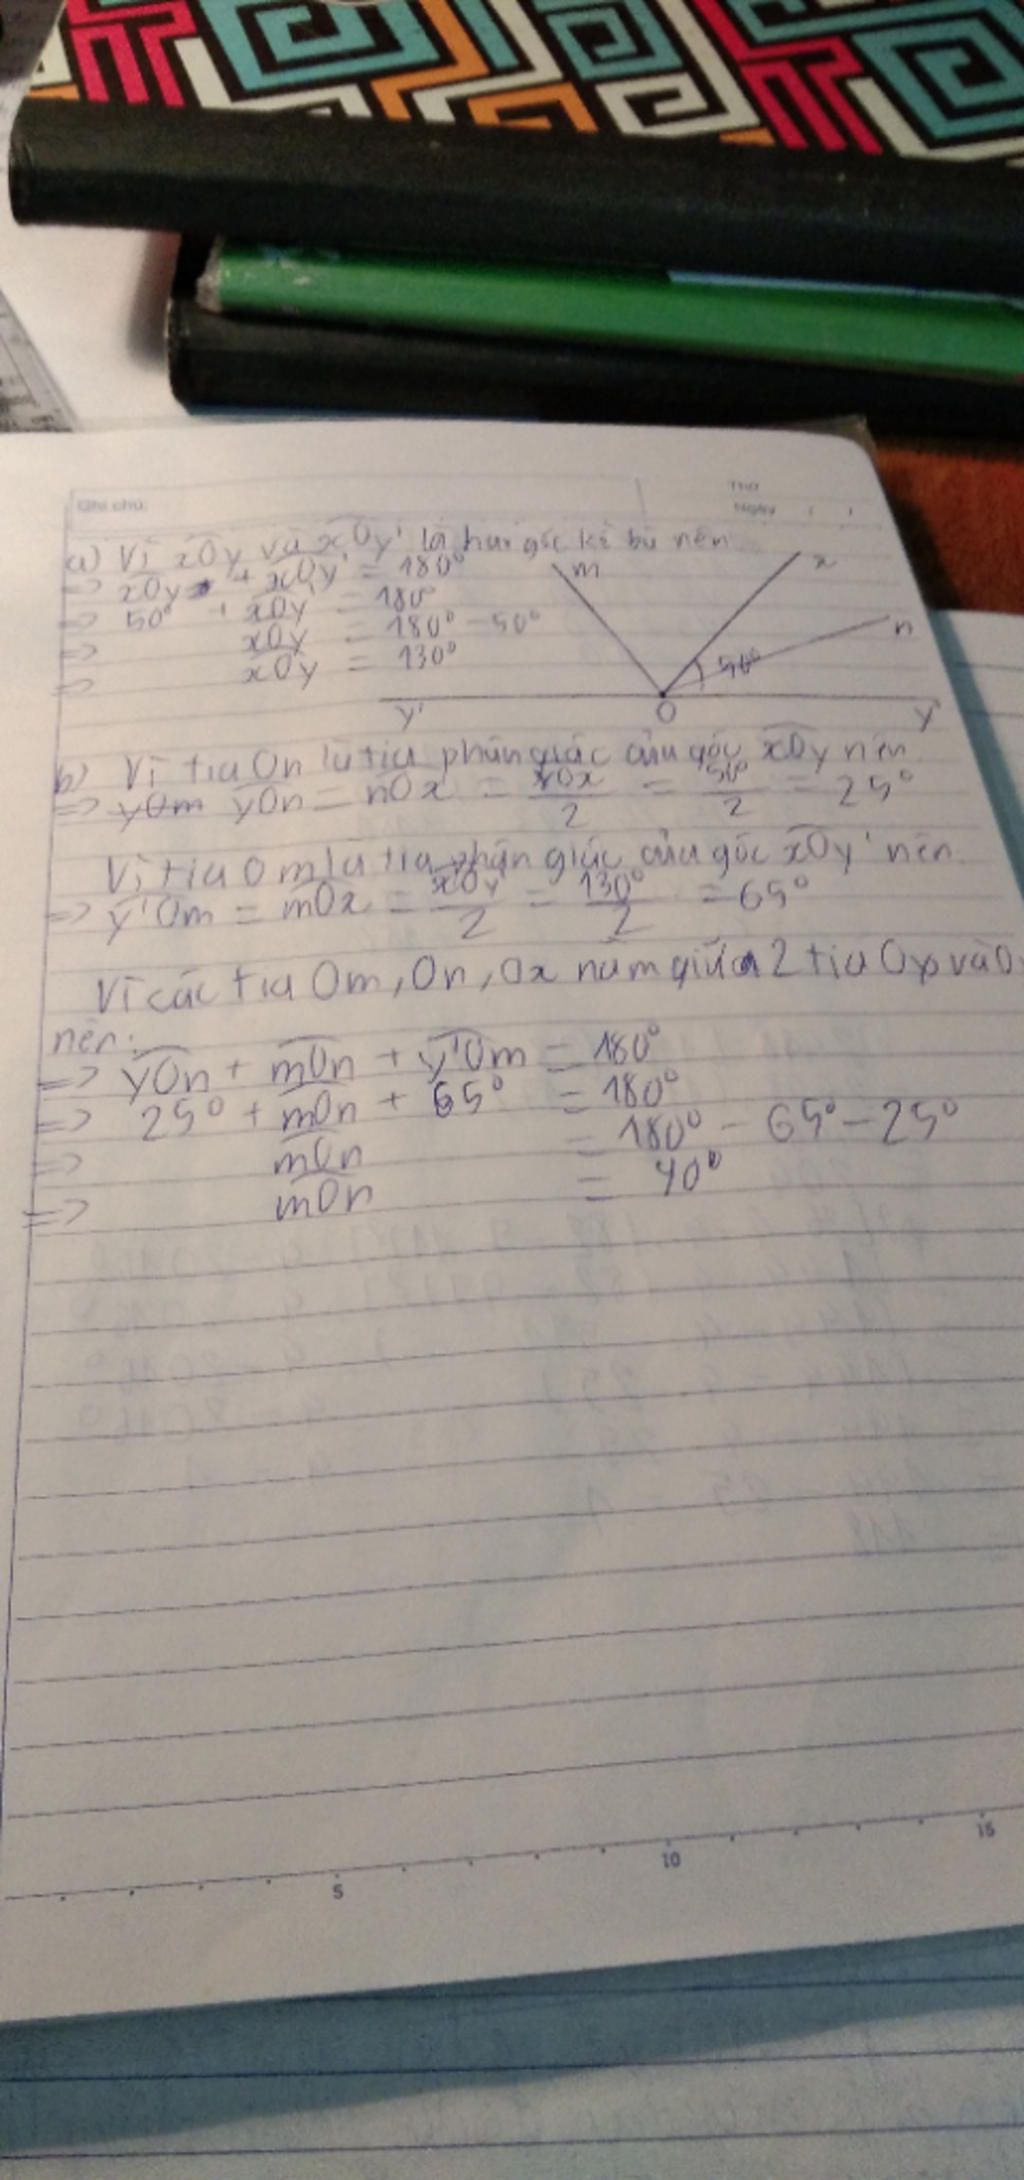 Ghi chú:
Thứ
Ngày
a) Vì xOy và xOy' là hai góc kề bù nên
=> xOy + xOy' = 180°
=> 50° + xOy' = 180°
=> xOy = 180° - 50°
=> xOy = 130°
m
x
n
50°
y'
O
y
b) Vì tia On là tia phân giác của góc xOy nên
=> yOm yOn = nOx = yOx/2 = 50°/2 = 25°
Vì tia Om là tia phân giác của góc xOy' nên
=> y'Om = mOx = xOy'/2 = 130°/2 = 65°
Vì các tia Om, On, Ox nằm giữa 2 tia Oy và O
nên:
=> yOn + mOn + y'Om = 180°
=> 25° + mOn + 65° = 180°
=> mOn = 180° - 65° - 25°
=> mOn = 40°
5
10
15